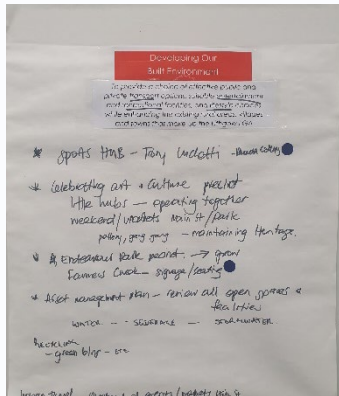 Developing Our
Built Environment
To provide a choice of effective public and
private transport options, suitable
and recreational facilities, and
while enhancing the existing rural areas, villages
and towns that make up the Lithgow LGA
* Sports HUB - Tony Luchetti -
* Celebrating art + culture precinct
little hubs - operating together
weekend/markets Main St/Park
pottery, gang gang - maintaining Heritage.
* Endeavour Park precinct. → grow
Farmers Creek - signage/seating
* Asset management plan - review all open spaces &
facilities
WATER - - SEWERAGE - STORMWATER
Recycling
- green bins - etc